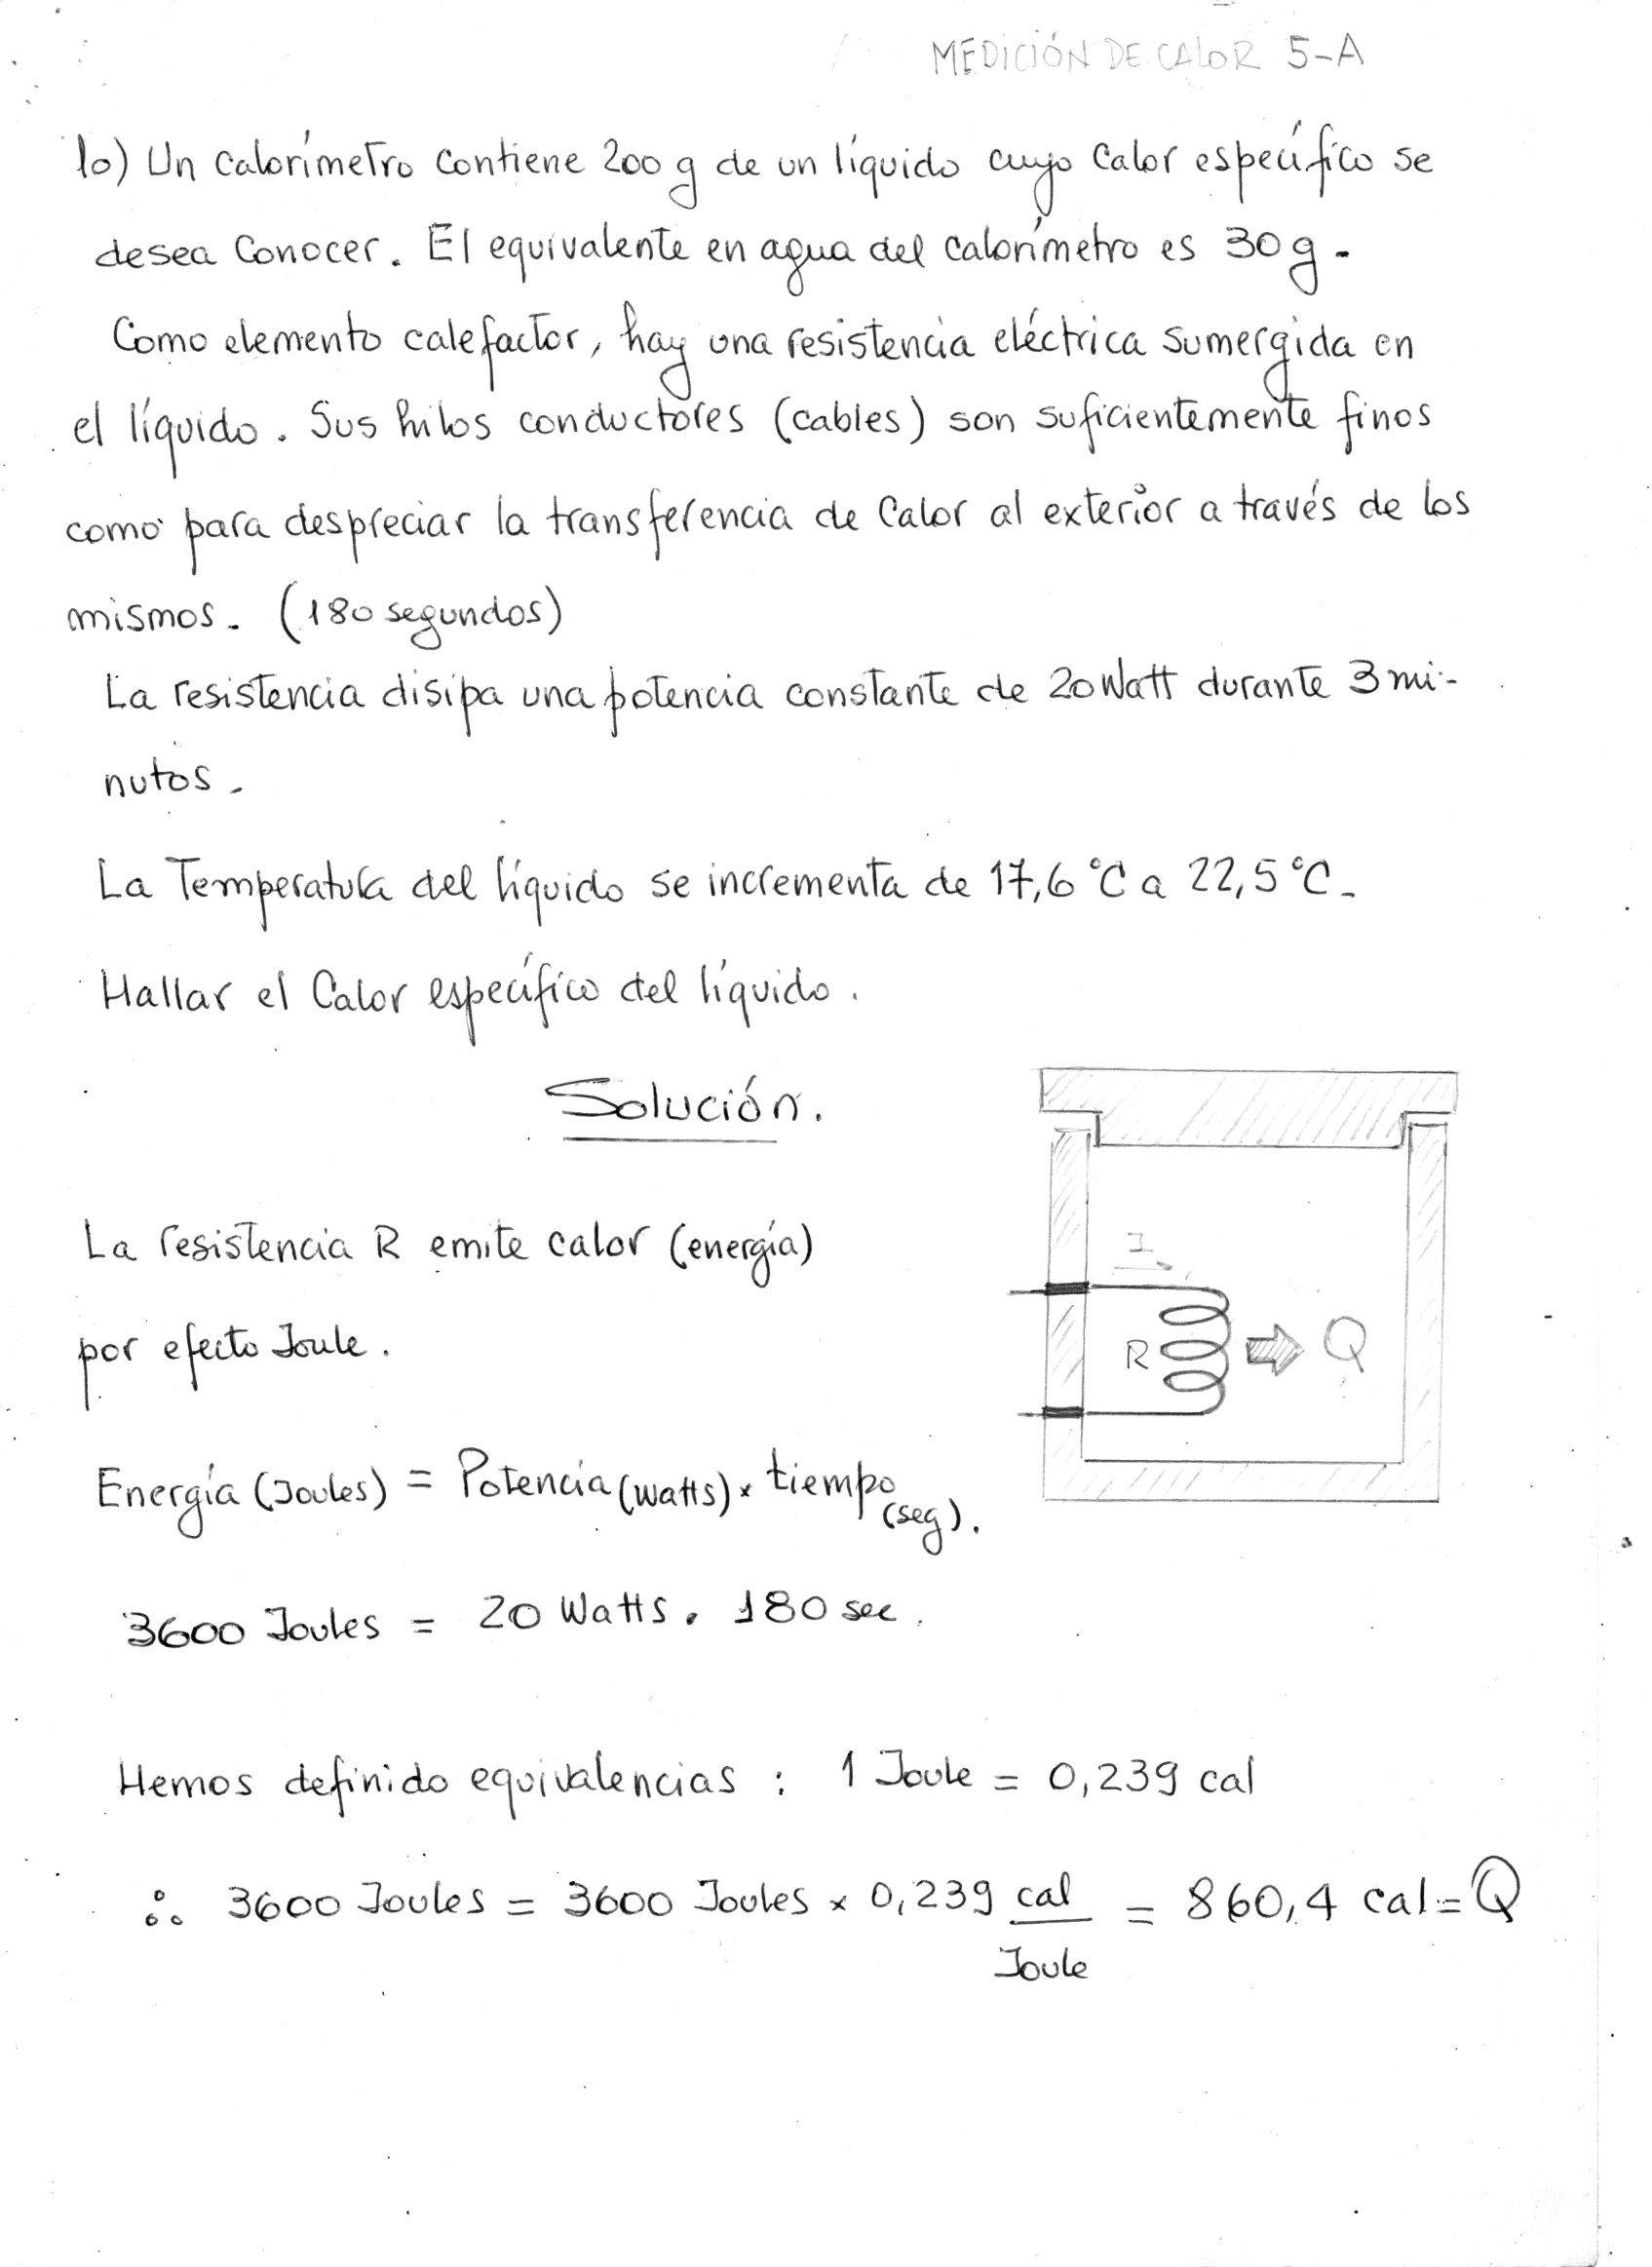 MEDICIÓN DE CALOR 5-A
10) Un calorímetro contiene 200 g de un líquido cuyo Calor específico se
desea Conocer. El equivalente en agua del calorímetro es 30 g.
Como elemento calefactor, hay una resistencia eléctrica sumergida en
el líquido. Sus hilos conductores (cables) son suficientemente finos
como para despreciar la transferencia de Calor al exterior a través de los
mismos. (180 segundos)
La resistencia disipa una potencia constante de 20 Watt durante 3 mi-
nutos.
La Temperatura del líquido se incrementa de 17,6 °C a 22,5 °C.
Hallar el Calor específico del líquido.
Solución.
La resistencia R emite calor (energía)
por efecto Joule.
I
R
Q
Energía (Joules) = Potencia (watts) × tiempo (seg).
3600 Joules = 20 Watts . 180 sec.
Hemos definido equivalencias : 1 Joule = 0,239 cal
∴ 3600 Joules = 3600 Joules × 0,239 cal = 860,4 cal = Q
Joule